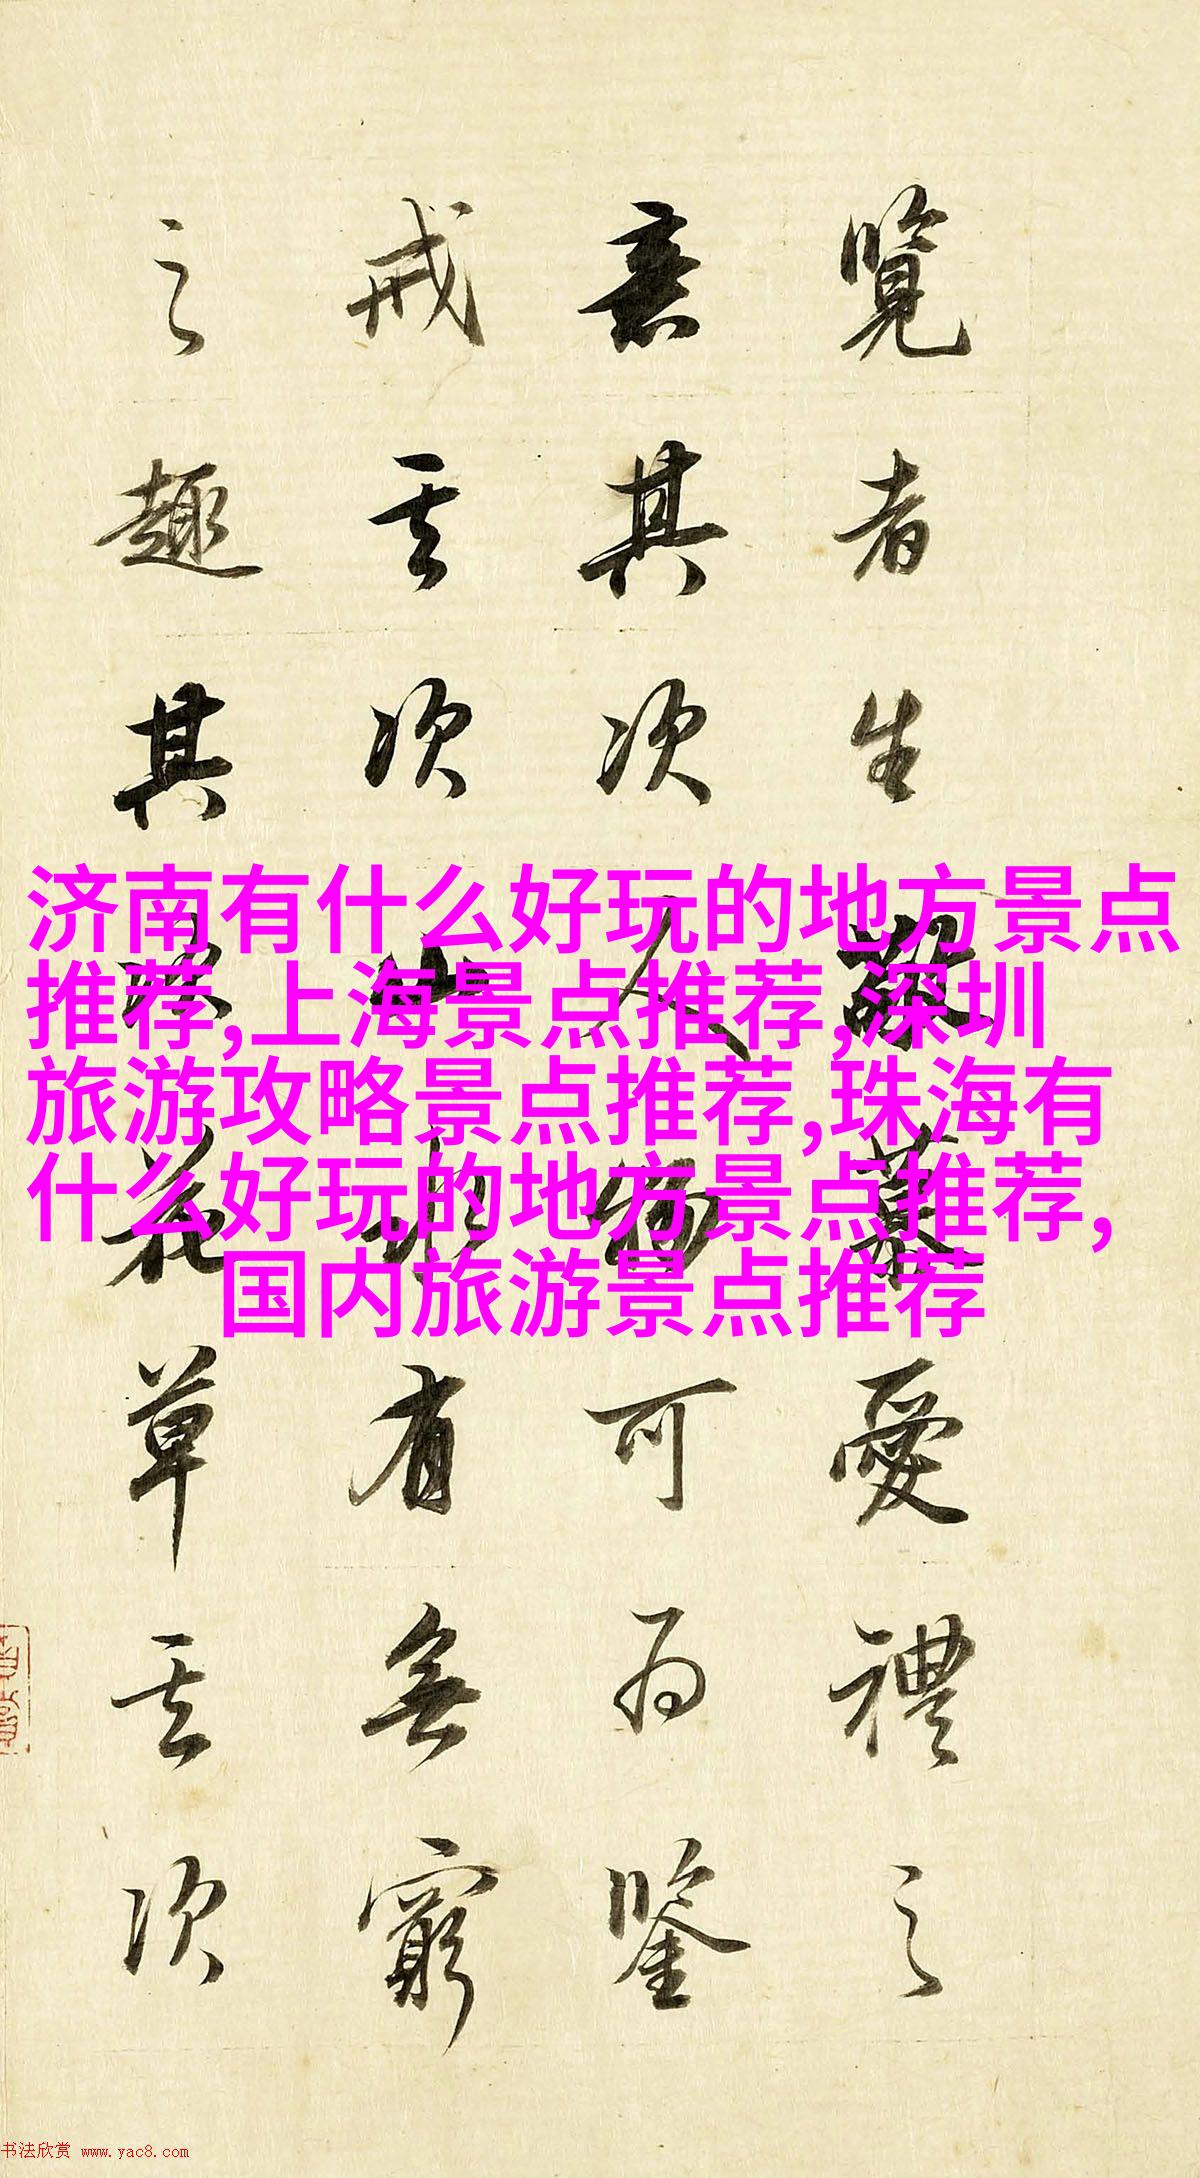 覽者生敬慕愛禮之
意其次人物可為鑒
戒其次山水有無窮
之趣其花草其次
济南有什么好玩的地方景点
推荐,上海景点推荐,深圳
旅游攻略景点推荐,珠海有
什么好玩的地方景点推荐,
国内旅游景点推荐
书法欣赏 www.yac8.com